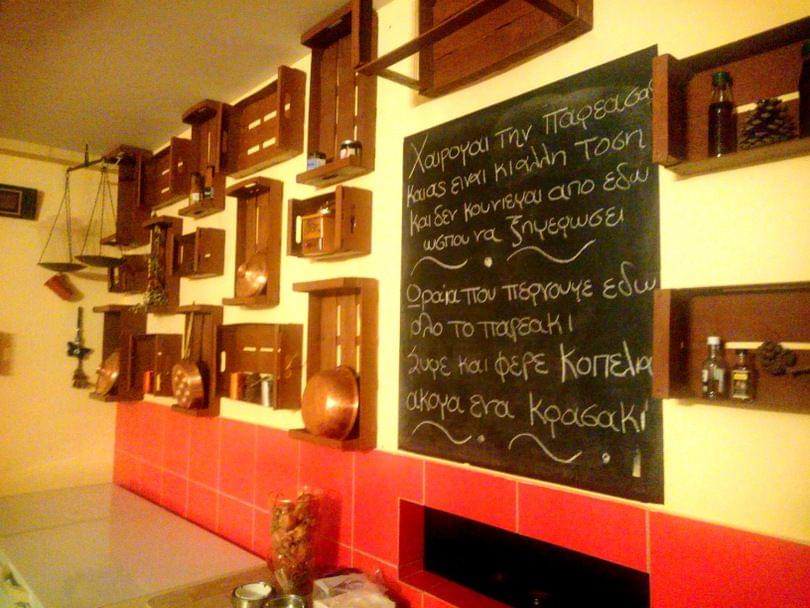 Χαιρομαι την παρεα σας
και ας ειναι κι αλλη τοση
και δεν κουνιεμαι απο εδω
ωσπου να ξημερωσει
Ωραια που περνουμε εδω
ολο το παρεακι
Συρε και φερε κοπελια
ακομα ενα κρασακι